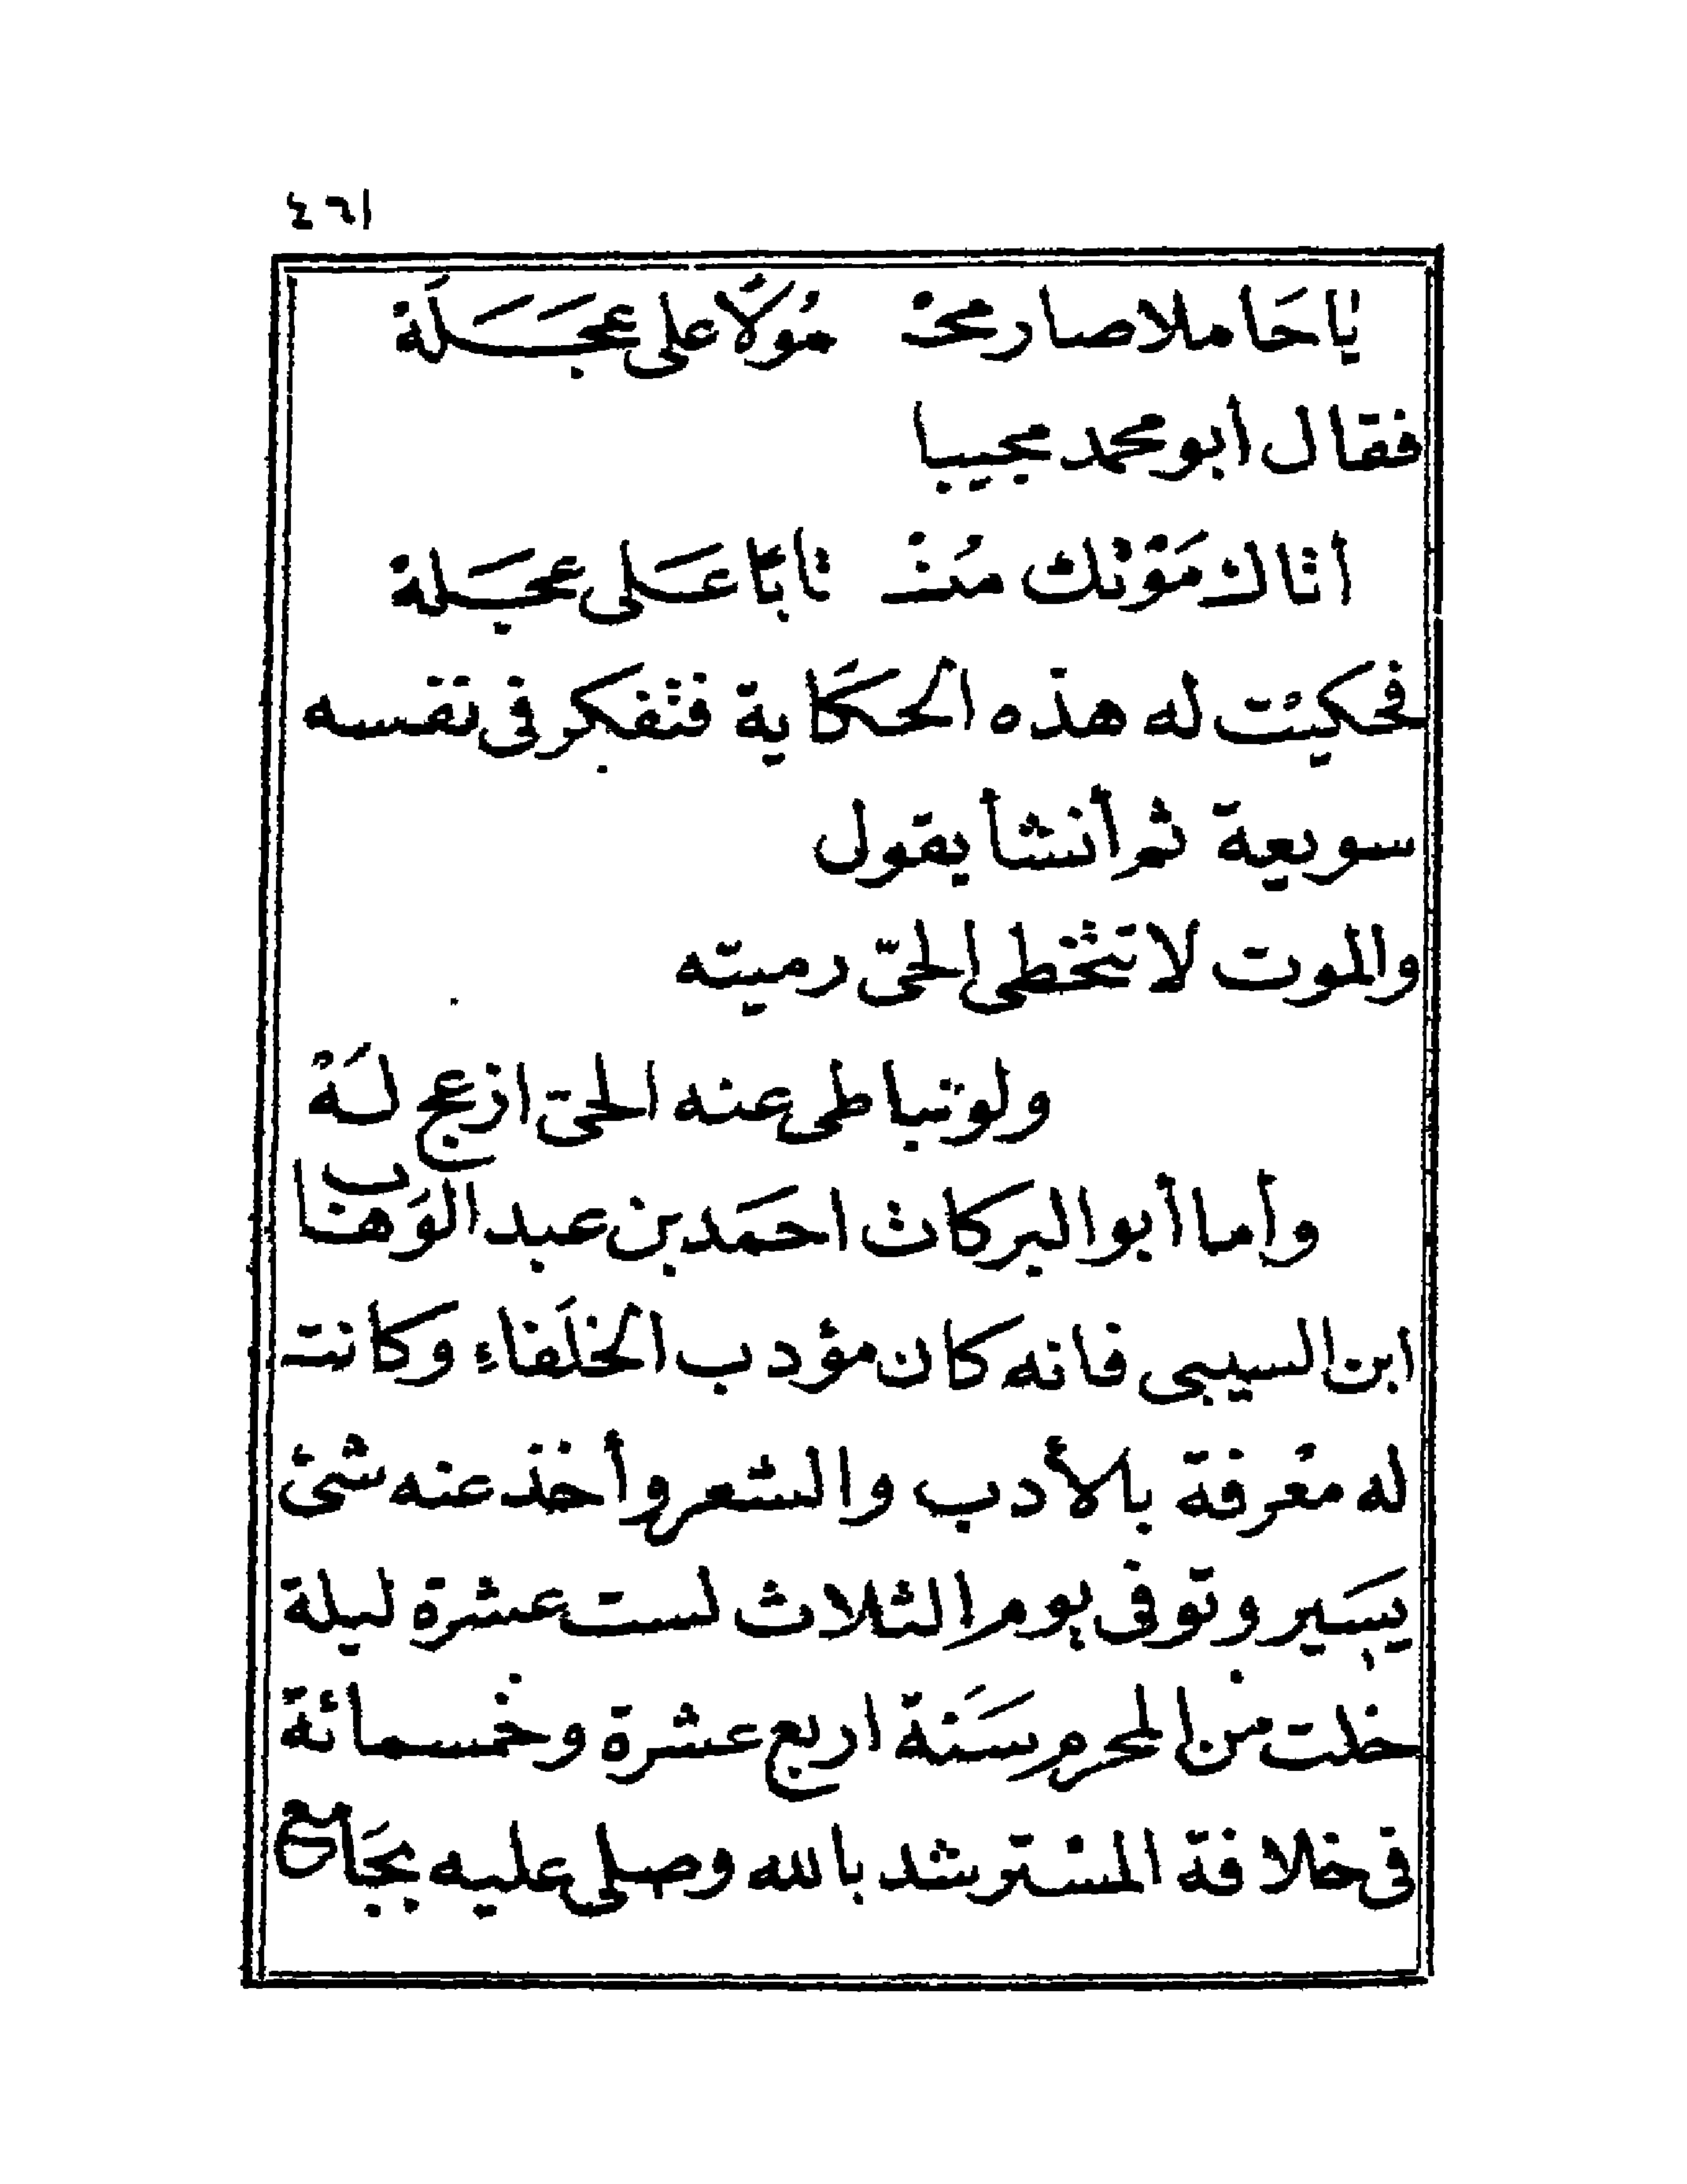 ٤٦١
يا حَاملا صار محْـ مُولًا على عجَـَلَة
فقال أبو محمد مجيبا
أتاك مَوْتك منْـ تابًا عَـلى عجَـلة
فحكيت له هذه الحكاية فتفكر فى نفسه
سويعة ثم أنشأ يقول
والموت لا تتخطى الحىّ رميته
ولو تباطى عنه الحىّ ازعج لَهْ
وأما أبو البركات احمَد بن عبد الوَهاب
ابن السيبى فانه كان مؤدب الخلَفاء وكانت
له معْرفة بالأدب والشعر وأخذ عنه شئ
يسَير وتوفى يوم الثلاث لست عشرة ليلة
خلت من المحرم سَنة اربع عشرة وخمسمائة
فى خلافة المسْترشد بالله وصلى عليه بجَامع